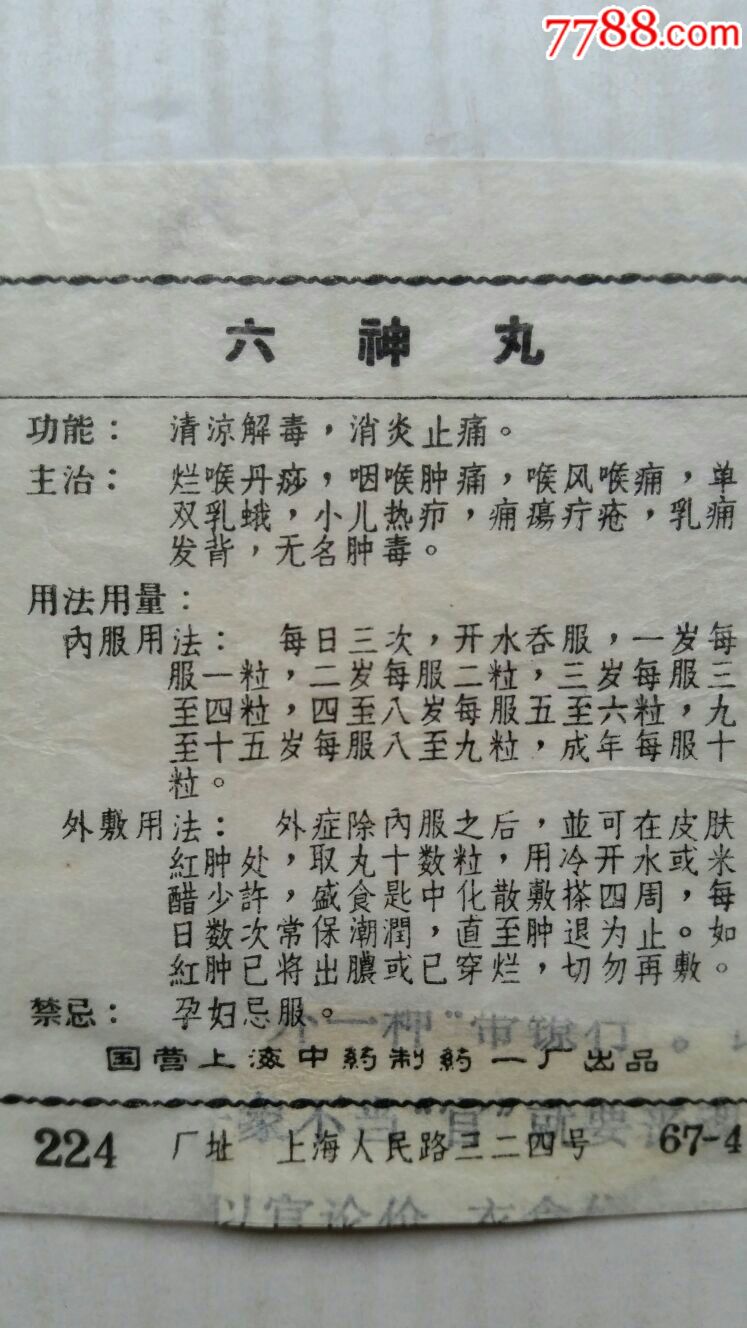 7788.com
六神丸
功能： 清涼解毒，消炎止痛。
主治： 烂喉丹痧，咽喉肿痛，喉风喉痛，单
双乳蛾，小儿热疖，痈瘍疔疮，乳痈
发背，无名肿毒。
用法用量：
內服用法： 每日三次，开水吞服，一岁每
服一粒，二岁每服二粒，三岁每服三
至四粒，四至八岁每服五至六粒，九
至十五岁每服八至九粒，成年每服十
粒。
外敷用法： 外症除內服之后，並可在皮肤
紅肿处，取丸十数粒，用冷开水或米
醋少許，盛食匙中化散敷搽四周，每
日数次常保潮潤，直至肿退为止。如
紅肿已将出膿或已穿烂，切勿再敷。
禁忌： 孕妇忌服。
国营上海中药制药一厂出品
224 厂址 上海人民路三二四号 67-4